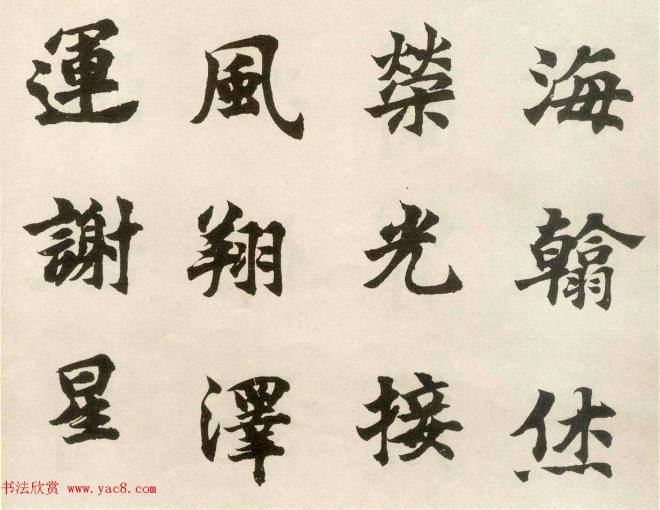 海翰烋
榮光接
風翔澤
運謝星
书法欣赏 www.yac8.com